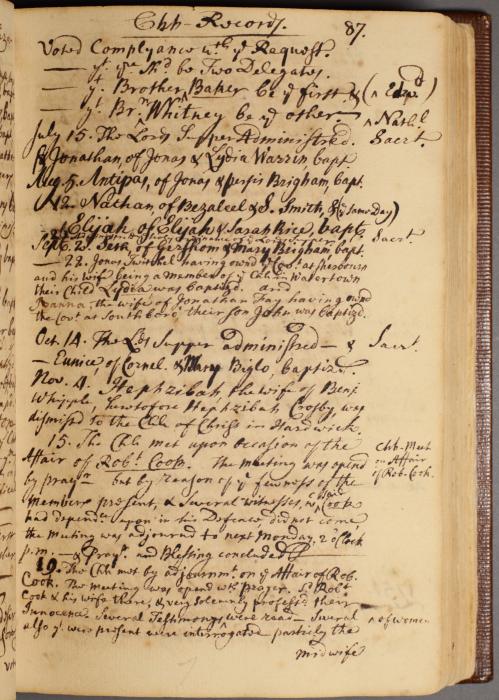 Chh-Records. 87.
Voted Complyance wth ye Request.
— yt. yre shd be Two Delegates.
— yt. Brother Baker be ye first & (^ Edwd)
— yt Brn. Wm. Whitney be ye other — ^ Nathl.
July 15. The Lords Supper Administred. Sacrt.
& Jonathan, of Jonas & Lydia Warrin bapt
Aug. 5. Antipas, of Jonas & persis Brigham, bapt.
12. Nathan, of Bezaleel & S. Smith, & (ye same Day)
Elijah of Elijah & Sarah Rice, bapt.
Sacrt.
Sept. 2. Seth of Gershom & Mary Brigham bapt.
— 22. Jonas Twitchel having ownd ye Covt. at Sherbourn
and his wife being a member of ye Chh in Watertown
their Child Lydia was baptizd. and
Joanna, the wife of Jonathan Fay having ownd
the Covt at Southboro, their son John was baptizd.
Oct. 14. The Lds Supper administred — & Sacrt.
— Eunice, of Cornel. & Mary Biglo, baptizd.
Nov. 4. Hephzibah, the wife of Benj.
Whipple, heretofore Hephzibah Crosby was
dismissd to the Chh of Christ in Hardwick.
15. The Chh met upon occasion of the
Chh-Meet
on Affair
of Rob. Cook.
Affair of Robt. Cook. The meeting was opend
by prayr. but by reason of ye fewness of the
Members present, & several witnesses, wc said Cook
had dependd upon in his Defence, did not come,
the meeting was adjournd to next Monday, 2 o'Clock
p.m. — & Prayr. and Blessing concluded
19. The Chh met by adjournmt. on ye Affair of Rob.
Cook. The meeting was opend wth prayer. Sd Robt
Cook & his wife there, & very solemnly professd their
Innocence. Several Testimonys were read — Several ^ of women
also yt were present were interrogated particly the
midwife